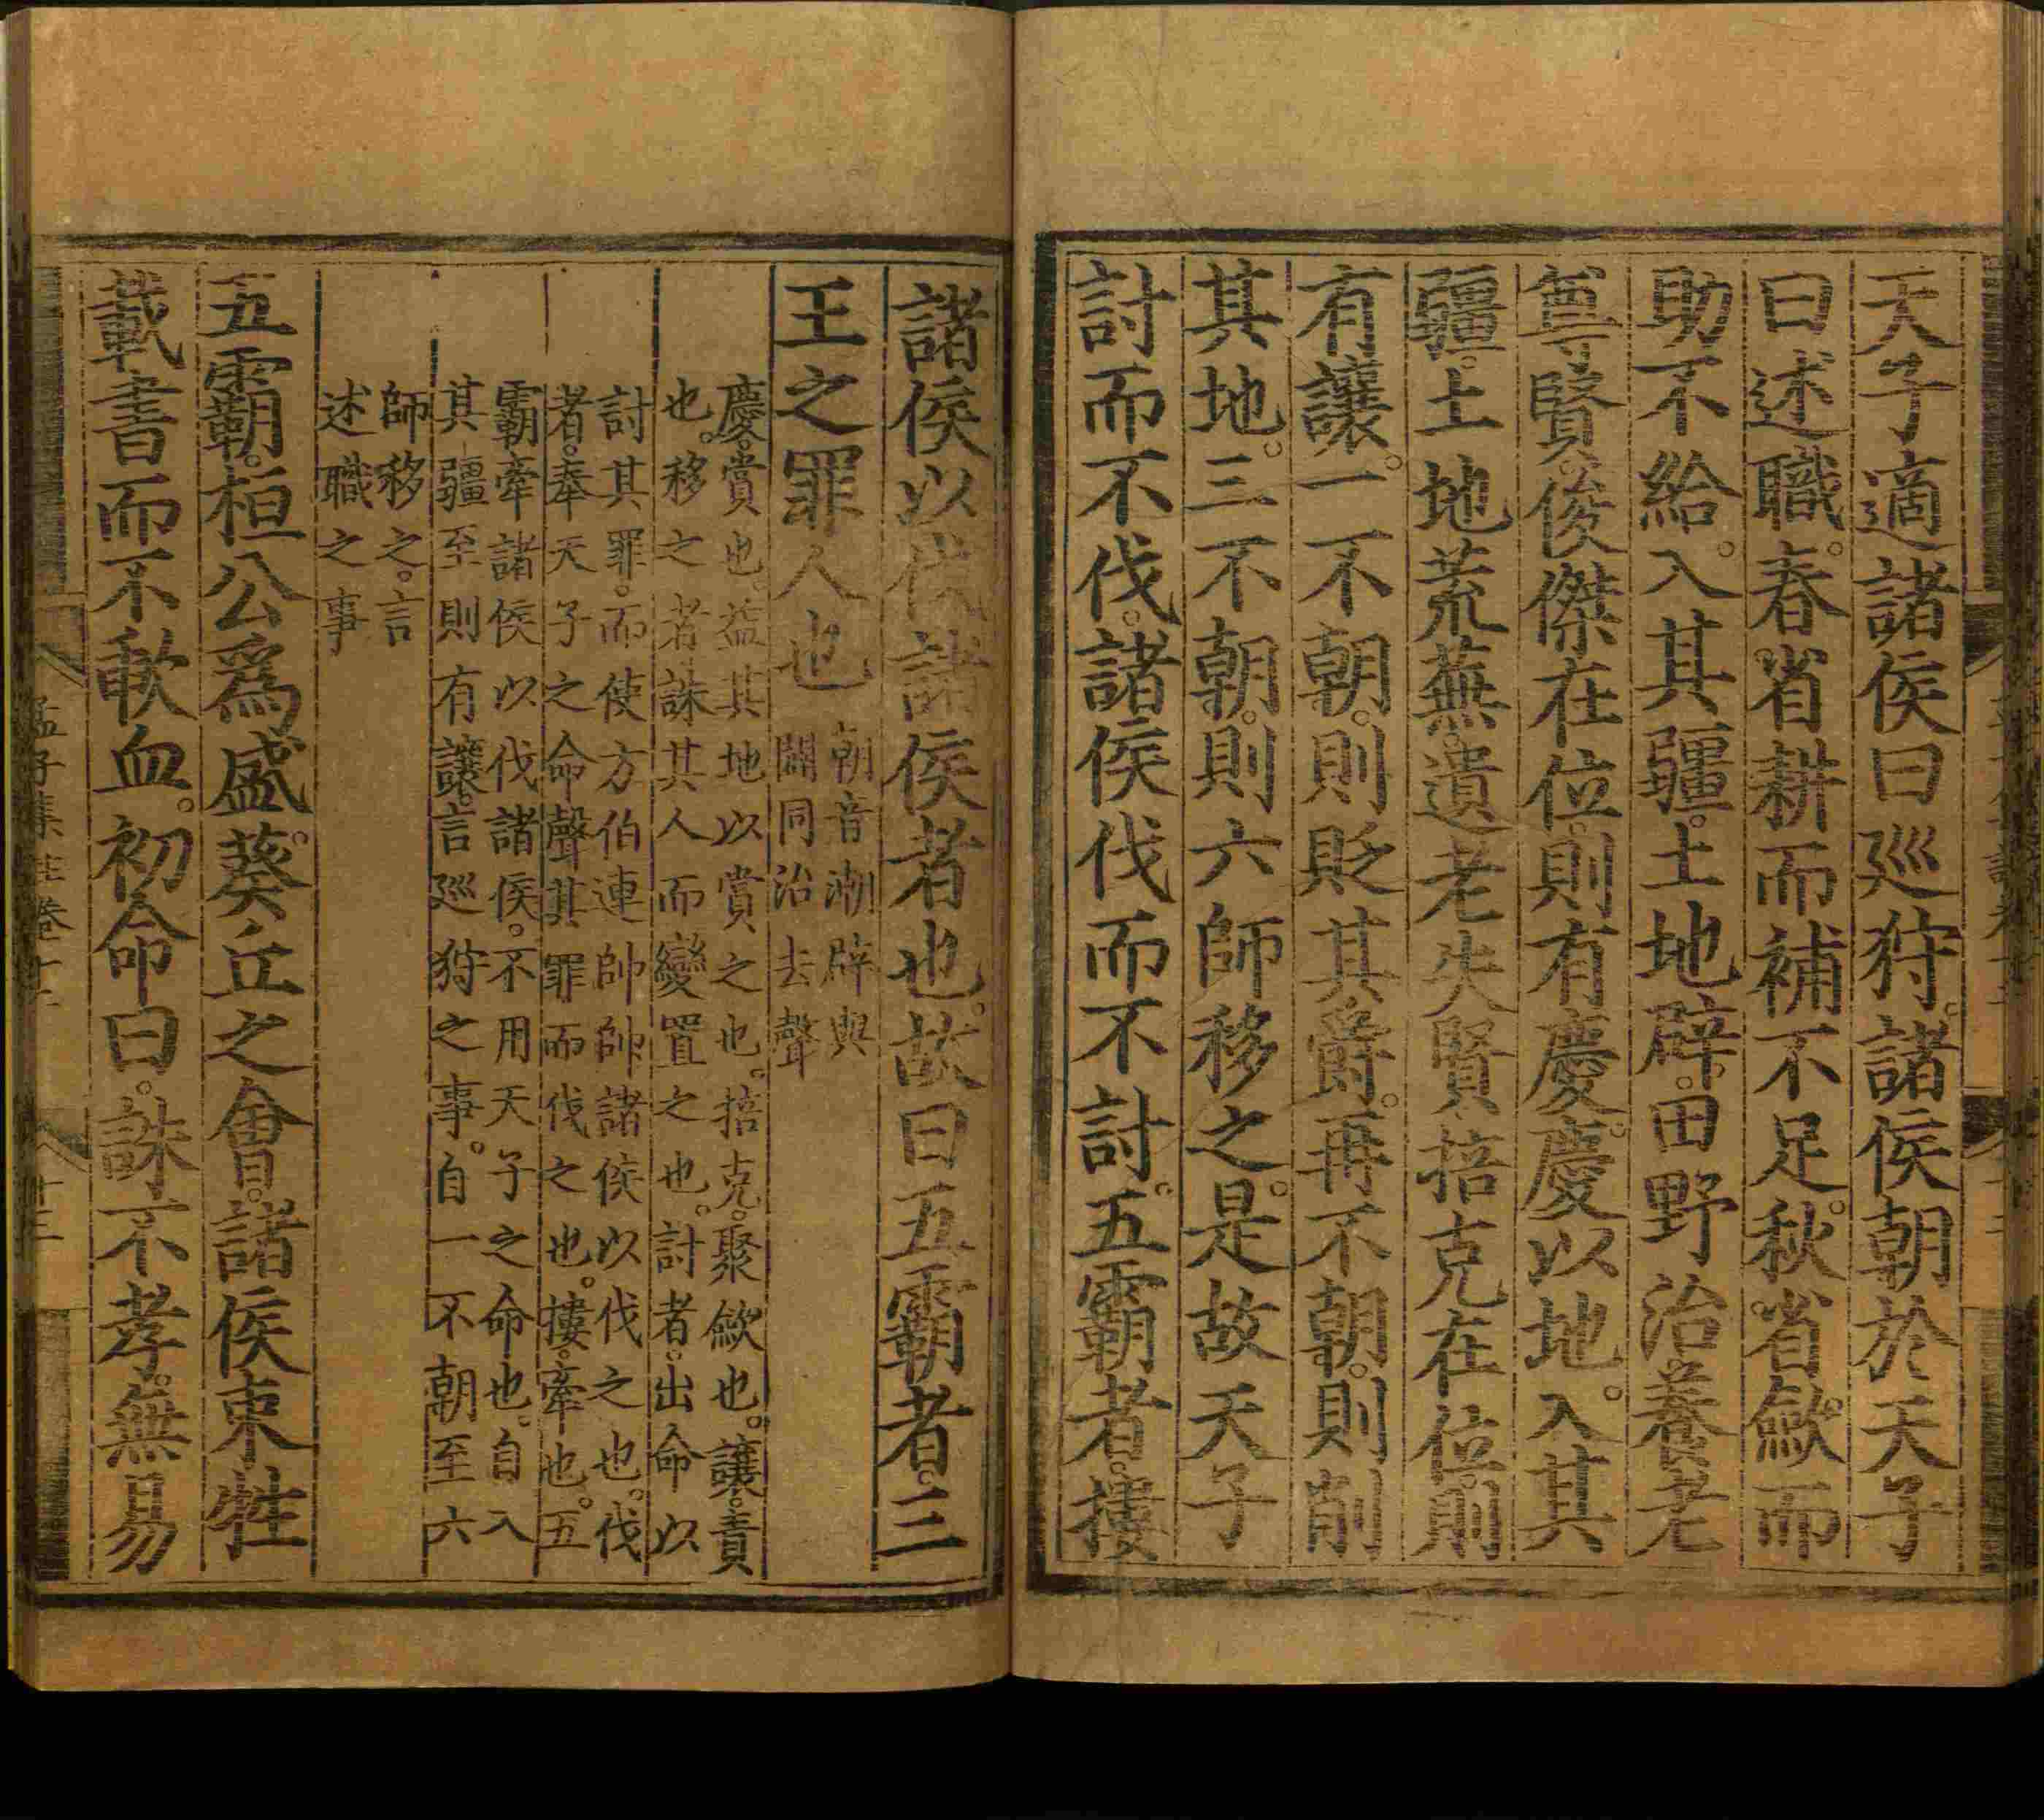 天子適諸侯曰巡狩。諸侯朝於天子
曰述職。春省耕而補不足。秋省斂而
助不給。入其疆。土地辟。田野治。養老
尊賢。俊傑在位。則有慶。慶以地。入其
疆。土地荒蕪。遺老失賢。掊克在位。則
有讓。一不朝。則貶其爵。再不朝。則削
其地。三不朝。則六師移之。是故天子
討而不伐。諸侯伐而不討。五霸者。摟
諸侯以伐諸侯者也。故曰五霸者。三
王之罪人也
朝音潮辟與
闢同治去聲
慶。賞也。益其地以賞之也。掊克。聚斂也。讓。責
也。移之者誅其人而變置之也。討者。出命以
討其罪。而使方伯連帥帥諸侯以伐之也。伐
者。奉天子之命聲其罪而伐之也。摟。牽也。五
霸牽諸侯以伐諸侯。不用天子之命也。自入
其疆至則有讓。言巡狩之事。自一不朝至六
師移之。言
述職之事
五霸。桓公爲盛。葵丘之會。諸侯束牲
載書而不歃血。初命曰。誅不孝。無易
孟子集註卷十二
十三